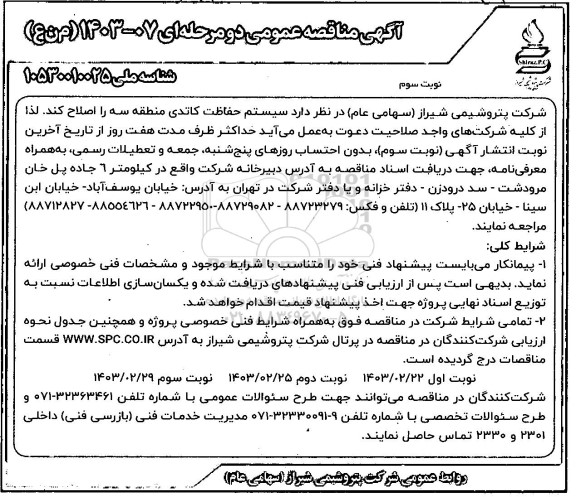 آگهی مناقصه عمومی دو مرحله‌ای ۰۷-۱۴۰۳ (م‌ن‌ع)
Shiraz.P.C
شرکت پتروشیمی شیراز
شناسه ملی ۱۰۵۳۰۰۱۰۰۲۵
نوبت سوم
شرکت پتروشیمی شیراز (سهامی عام) در نظر دارد سیستم حفاظت کاتدی منطقه سه را اصلاح کند. لذا
از کلیه شرکت‌های واجد صلاحیت دعوت به‌عمل می‌آید حداکثر ظرف مدت هفت روز از تاریخ آخرین
نوبت انتشار آگهی (نوبت سوم)، بدون احتساب روزهای پنج‌شنبه، جمعه و تعطیلات رسمی، به‌همراه
معرفی‌نامه، جهت دریافت اسناد مناقصه به آدرس دبیرخانه شرکت واقع در کیلومتر ۶ جاده پل خان
مرودشت - سد درودزن - دفتر خزانه و یا دفتر شرکت در تهران به آدرس: خیابان یوسف‌آباد- خیابان ابن
سینا - خیابان ۲۵- پلاک ۱۱ (تلفن و فکس: ۸۸۷۲۳۲۷۹ - ۸۸۷۲۹۰۸۲ - ۸۸۷۲۲۹۵۰-۸۸۵۵۴۶۲۶ - ۸۸۷۱۲۸۲۷)
مراجعه نمایند.
شرایط کلی:
۱- پیمانکار می‌بایست پیشنهاد فنی خود را متناسب با شرایط موجود و مشخصات فنی خصوصی ارائه
نماید. بدیهی است پس از ارزیابی فنی پیشنهادهای دریافت شده و یکسان‌سازی اطلاعات نسبت به
توزیع اسناد نهایی پروژه جهت اخذ پیشنهاد قیمت اقدام خواهد شد.
۲- تمامی شرایط شرکت در مناقصه فوق به‌همراه شرایط فنی خصوصی پروژه و همچنین جدول نحوه
ارزیابی شرکت‌کنندگان در مناقصه در پرتال شرکت پتروشیمی شیراز به آدرس WWW.SPC.CO.IR قسمت
مناقصات درج گردیده است.
نوبت اول ۱۴۰۳/۰۲/۲۲ نوبت دوم ۱۴۰۳/۰۲/۲۵ نوبت سوم ۱۴۰۳/۰۲/۲۹
شرکت‌کنندگان در مناقصه می‌توانند جهت طرح سئوالات عمومی با شماره تلفن ۳۲۳۶۳۴۶۱-۰۷۱ و
طرح سئوالات تخصصی با شماره تلفن ۹-۳۲۳۳۰۰۹۱-۰۷۱ مدیریت خدمات فنی (بازرسی فنی) داخلی
۲۳۰۱ و ۲۳۳۰ تماس حاصل نمایند.
روابط عمومی شرکت پتروشیمی شیراز (سهامی عام)